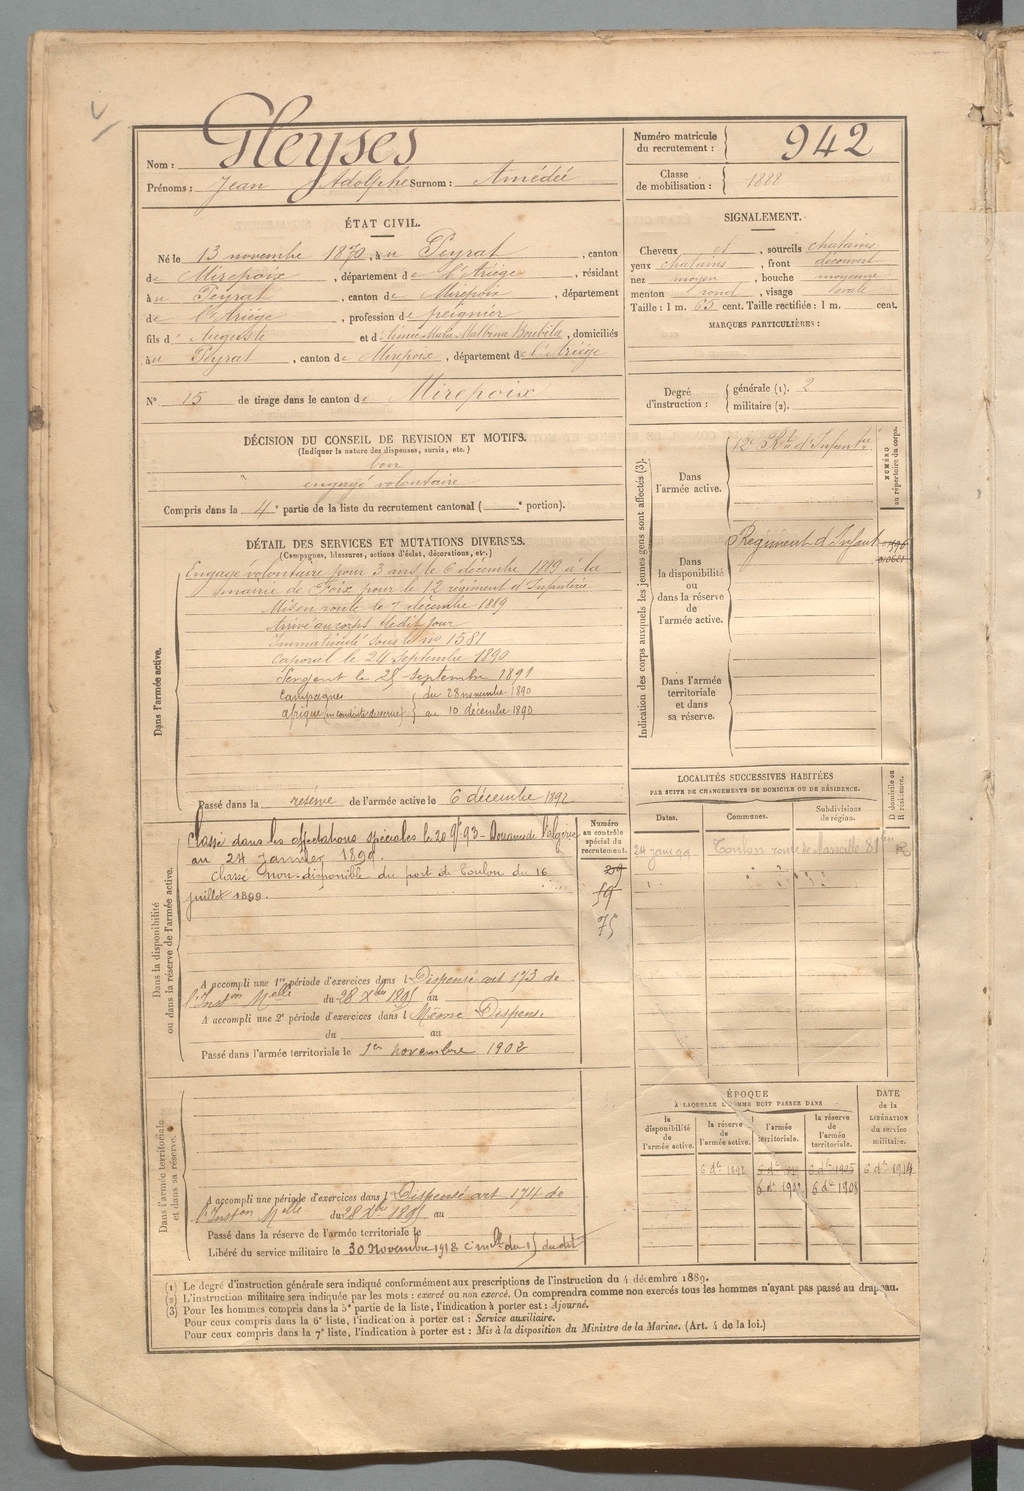 Nom : Gleyses
Prénoms : Jean Adolphe Surnom : Amédée
Numéro matricule du recrutement : 942
Classe de mobilisation : 1888
ÉTAT CIVIL.
Né le 13 novembre 1870, à u Peyrat, canton
de Mirepoix, département de l'Ariège, résidant
à u Peyrat, canton de Mirepoix, département
de l'Ariège, profession de peignier
fils d' Auguste et d' Aimée Marie Malbina Boubila, domiciliés
à u Peyrat, canton de Mirepoix, département de l'Ariège
N° 15 de tirage dans le canton de Mirepoix
SIGNALEMENT.
Cheveux et, sourcils chatains
yeux chatains, front découvert
nez moyen, bouche moyenne
menton rond, visage ovale
Taille : 1 m. 65 cent. Taille rectifiée : 1 m. cent.
MARQUES PARTICULIÈRES :
Degré d'instruction : générale (1). 2
militaire (2).
DÉCISION DU CONSEIL DE REVISION ET MOTIFS.
(Indiquer la nature des dispenses, sursis, etc.)
bon
engagé volontaire
Compris dans la 4e partie de la liste du recrutement cantonal ( e portion).
DÉTAIL DES SERVICES ET MUTATIONS DIVERSES.
(Campagnes, blessures, actions d'éclat, décorations, etc.)
Dans l'armée active.
Engagé volontaire pour 3 ans le 6 décembre 1889 à la
mairie de Foix pour le 12 régiment d'Infanterie
Mis en route le 7 décembre 1889
Arrivé au corps ledit jour
Immatriculé sous le no 1581
Caporal le 24 Septembre 1890
Sergent le 25 Septembre 1891
Campagnes du 28 novembre 1890
afrique au 10 décembre 1890
Passé dans la réserve de l'armée active le 6 décembre 1892
Indication des corps auxquels les jeunes gens sont affectés (3).
NUMÉRO au répertoire du corps.
Dans l'armée active.
12e Rt d'Infantie
Dans la disponibilité ou dans la réserve de l'armée active.
Régiment d'Infant
Dans l'armée territoriale et dans sa réserve.
Dans la disponibilité ou dans la réserve de l'armée active.
Numéro au contrôle spécial du recrutement.
Classé dans les affectations spéciales le 20 93 - Douanes de l'algérie
au 24 janvier 1899.
Classé non-disponible du port de Toulon du 16
juillet 1899.
59
75
A accompli une 1re période d'exercices dans l Dispensé art 173 de
l'Inston Melle du 28 Xbre 1895 au
A accompli une 2e période d'exercices dans l Même Dispense
du au
Passé dans l'armée territoriale le 1er novembre 1902
LOCALITÉS SUCCESSIVES HABITÉES
PAR SUITE DE CHANGEMENTS DE DOMICILE OU DE RÉSIDENCE.
Dates. Communes. Subdivisions de région. D domicile ou R résidence.
24 janv 99 Toulon route de Marseille 81 R
Dans l'armée territoriale et dans sa réserve.
A accompli une période d'exercices dans l Dispensé art 174 de
l'Inston Melle du 28 Xbre 1895 au
Passé dans la réserve de l'armée territoriale le
Libéré du service militaire le 30 Novembre 1918 du 15 dudit
ÉPOQUE
À LAQUELLE L'HOMME DOIT PASSER DANS
DATE de la LIBÉRATION du service militaire.
la disponibilité de l'armée active.
la réserve de l'armée active.
l'armée territoriale.
la réserve de l'armée territoriale.
6 dbre 1892 6 dbre 1905 6 dbre 1914
6 dbre 1902 6 dbre 1908
(1) Le degré d'instruction générale sera indiqué conformément aux prescriptions de l'instruction du 4 décembre 1889.
(2) L'instruction militaire sera indiquée par les mots : exercé ou non exercé. On comprendra comme non exercés tous les hommes n'ayant pas passé au drapeau.
(3) Pour les hommes compris dans la 5e partie de la liste, l'indication à porter est : Ajourné.
Pour ceux compris dans la 6e liste, l'indication à porter est : Service auxiliaire.
Pour ceux compris dans la 7e liste, l'indication à porter est : Mis à la disposition du Ministre de la Marine. (Art. 4 de la loi.)